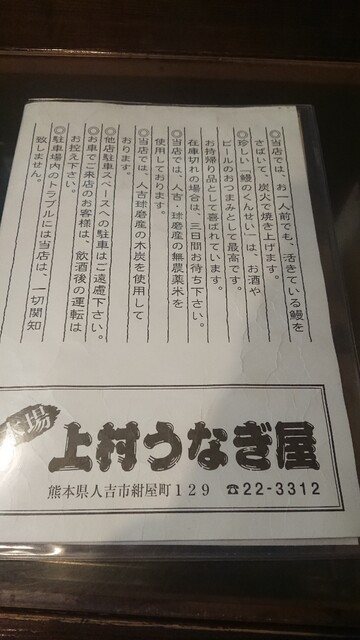 ◎当店では、お一人前でも、活きている鰻を
さばいて、炭火で焼き上げます。
◎珍しい「鰻のくんせい」は、お酒や
ビールのおつまみとして最高です。
お持帰り品として喜ばれています。
在庫切れの場合は、三日間お待ち下さい。
◎当店では、人吉・球磨産の無農薬米を
使用しております。
◎当店では、人吉球磨産の木炭を使用して
おります。
◎他店駐車スペースへの駐車はご遠慮下さい。
◎お車でご来店のお客様は、飲酒後の運転は
お控え下さい。
◎駐車場内のトラブルには当店は、一切関知
致しません。
本場
上村うなぎ屋
熊本県人吉市紺屋町129 ☎22-3312